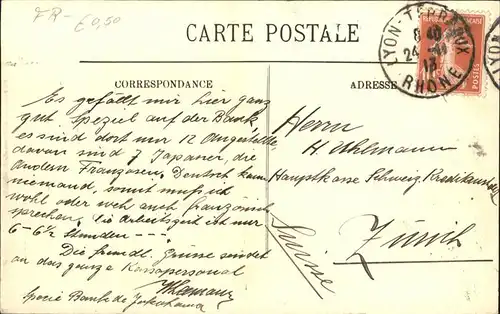 FR- €0,50
CARTE POSTALE
LYON-TERREAUX
8 40
24
13
RHONE
POSTES
CORRESPONDANCE
ADRESSE
Es gefällt mir hier ganz
gut speziel auf der Bank,
es sind dort nur 12 Angestellte,
davon sind 7 Japaner, die
andern Franzosen. Deutsch kann
niemand, sonst muß ich
wohl oder weh auch französisch
sprechen. Die Arbeitszeit ist nur
6-6½ Stunden ---
Die freundl. Grüsse sendet
an das ganze Kassapersonal
Specie Bank de Yokohama
Herrn
H. Uhlmann
Hauptkasse Schweiz. Kreditanstalt
Zürich
Suisse